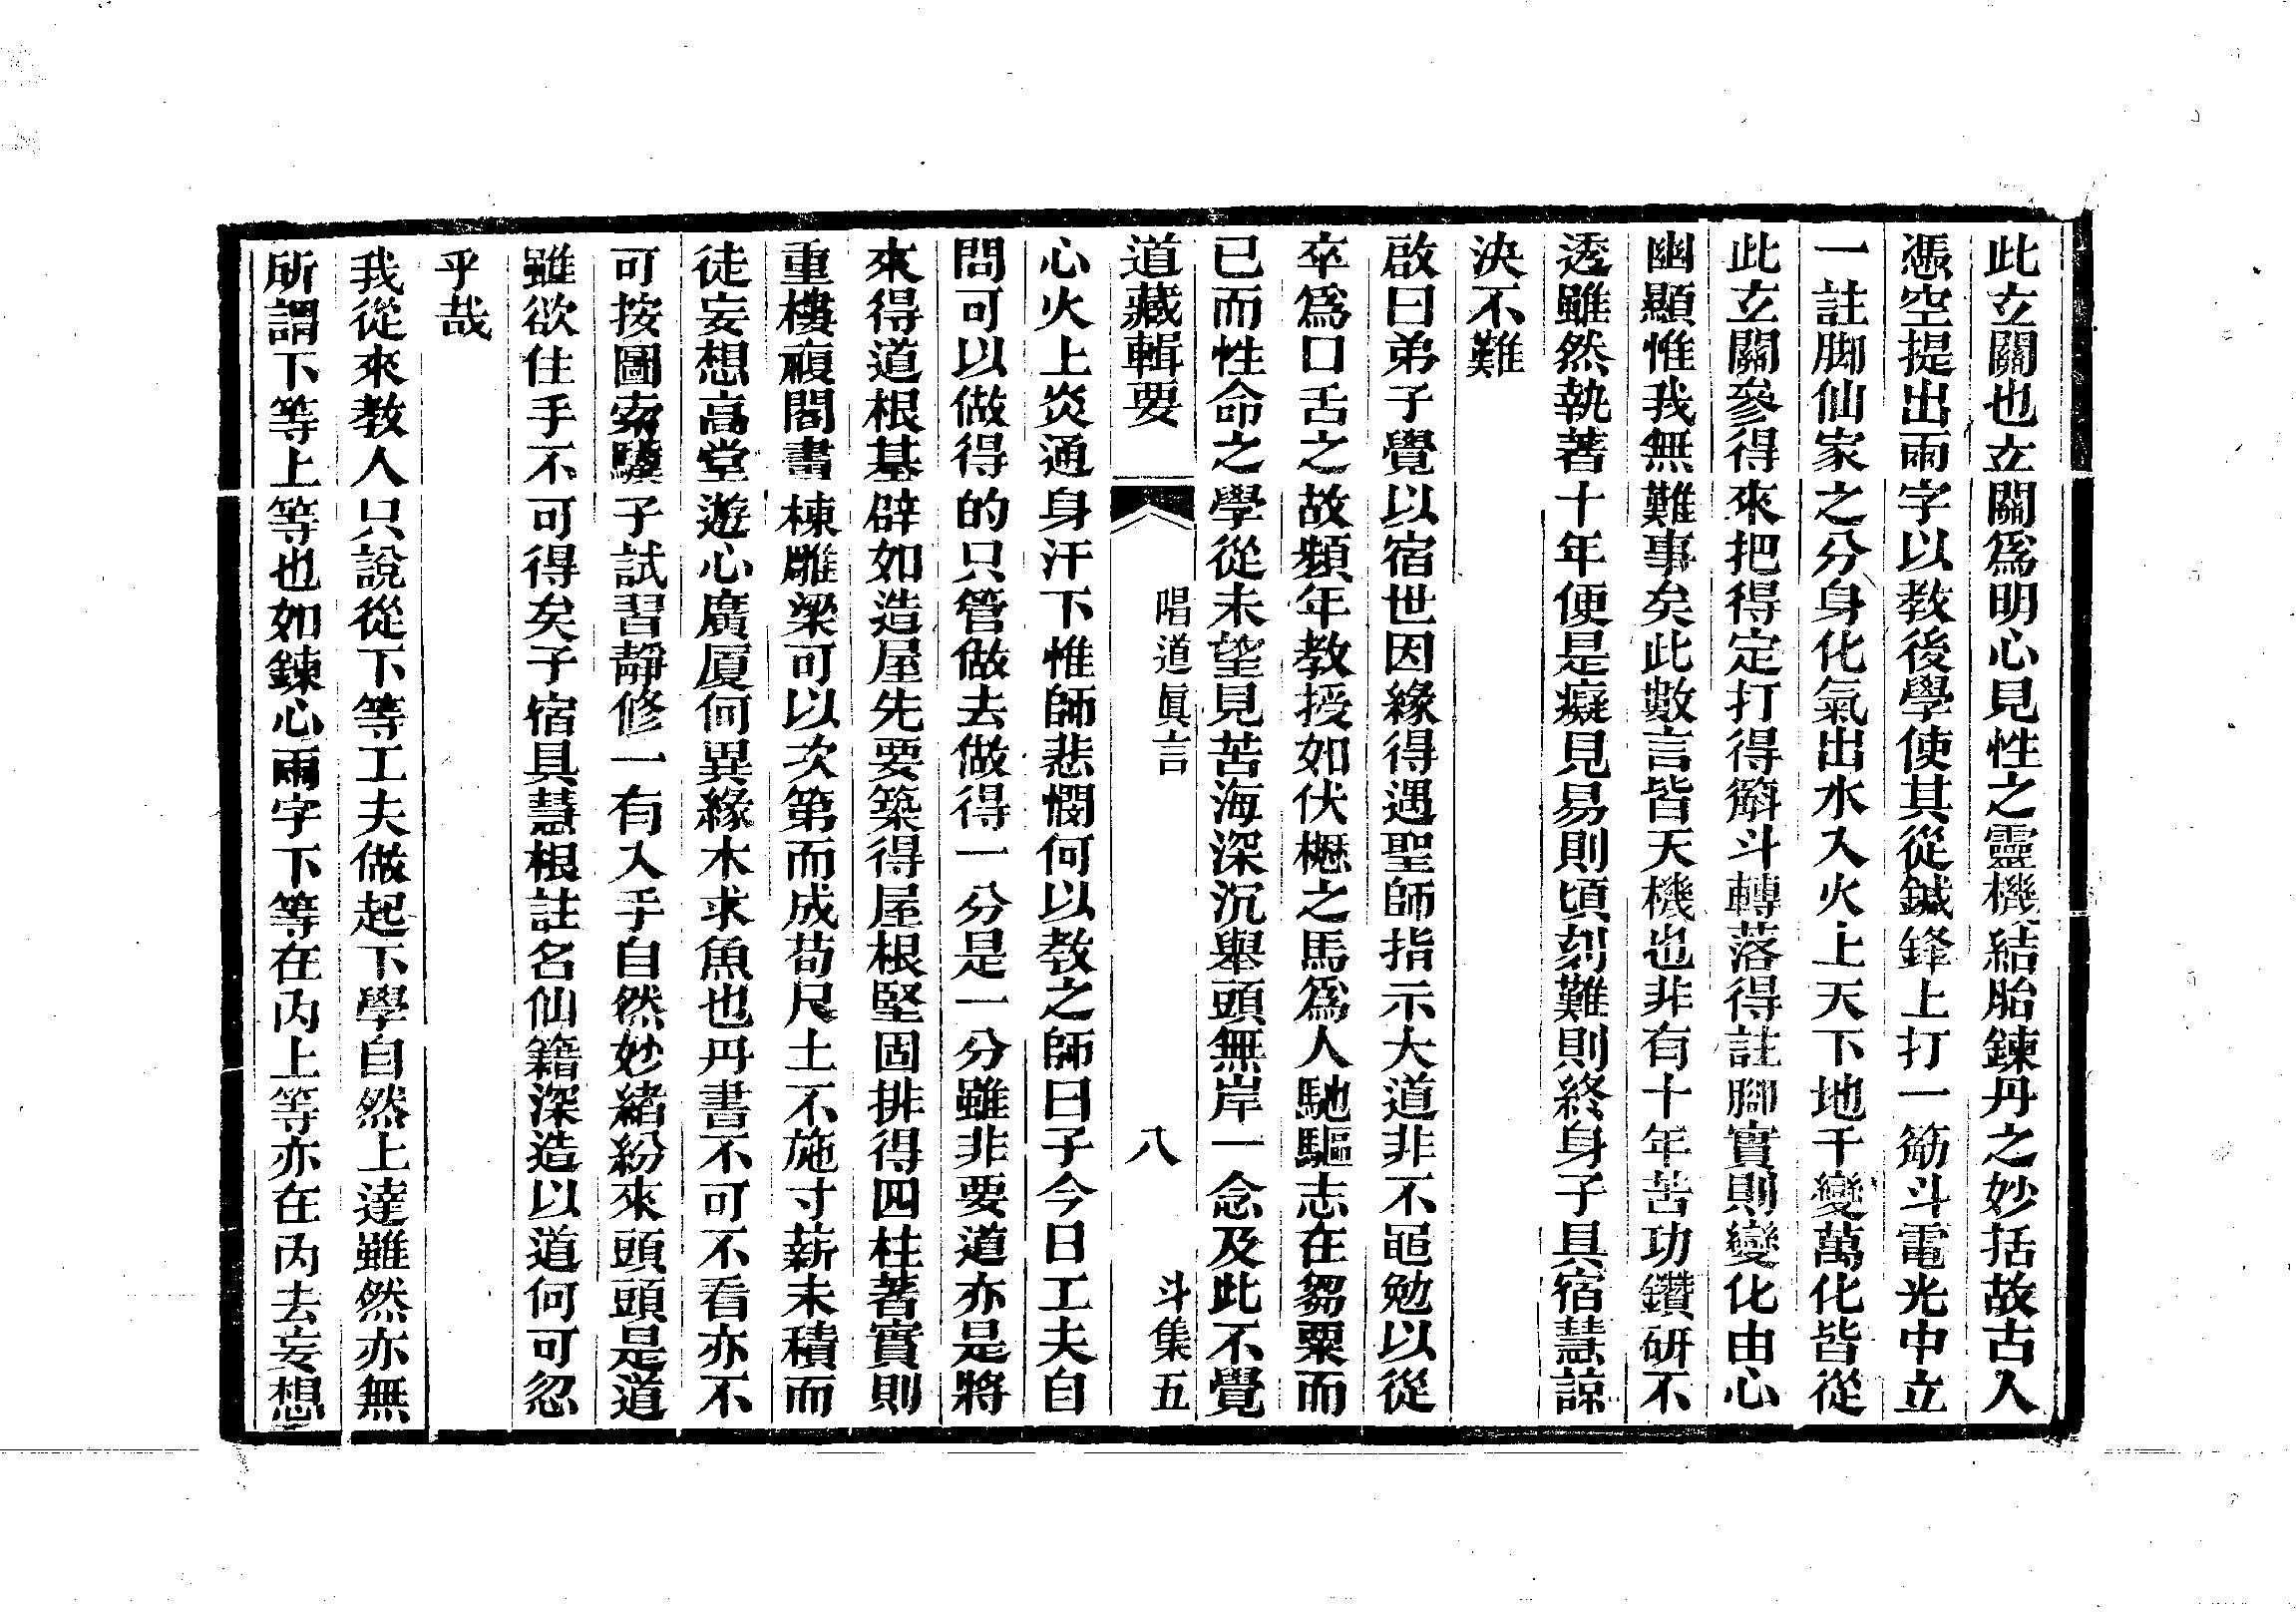 此玄關也玄關爲明心見性之靈機結胎鍊丹之妙括故古人
憑空提出兩字以教後學使其從鍼鋒上打一筋斗電光中立
一註脚仙家之分身化氣出水入火上天下地千變萬化皆從
此玄關參得來把得定打得觔斗轉落得註腳實則變化由心
幽顯惟我無難事矣此數言皆天機也非有十年苦功鑽研不
透雖然執著十年便是癡見易則頃刻難則終身子具宿慧諒
決不難
啟曰弟子覺以宿世因緣得遇聖師指示大道非不黽勉以從
卒爲口舌之故頻年教授如伏櫪之馬爲人馳驅志在芻粟而
已而性命之學從未望見苦海深沉舉頭無岸一念及此不覺
道藏輯要
唱道眞言
八
斗集五
心火上炎通身汗下惟師悲憫何以教之師曰子今日工夫自
問可以做得的只管做去做得一分是一分雖非要道亦是將
來得道根基辟如造屋先要築得屋根堅固排得四柱著實則
重樓複閣畫棟雕梁可以次第而成苟尺土不施寸薪未積而
徒妄想高堂遊心廣厦何異緣木求魚也丹書不可不看亦不
可按圖索驥子試習靜修一有入手自然妙緒紛來頭頭是道
雖欲住手不可得矣子宿具慧根註名仙籍深造以道何可忽
乎哉
我從來教人只說從下等工夫做起下學自然上達雖然亦無
所謂下等上等也如鍊心兩字下等在內上等亦在內去妄想